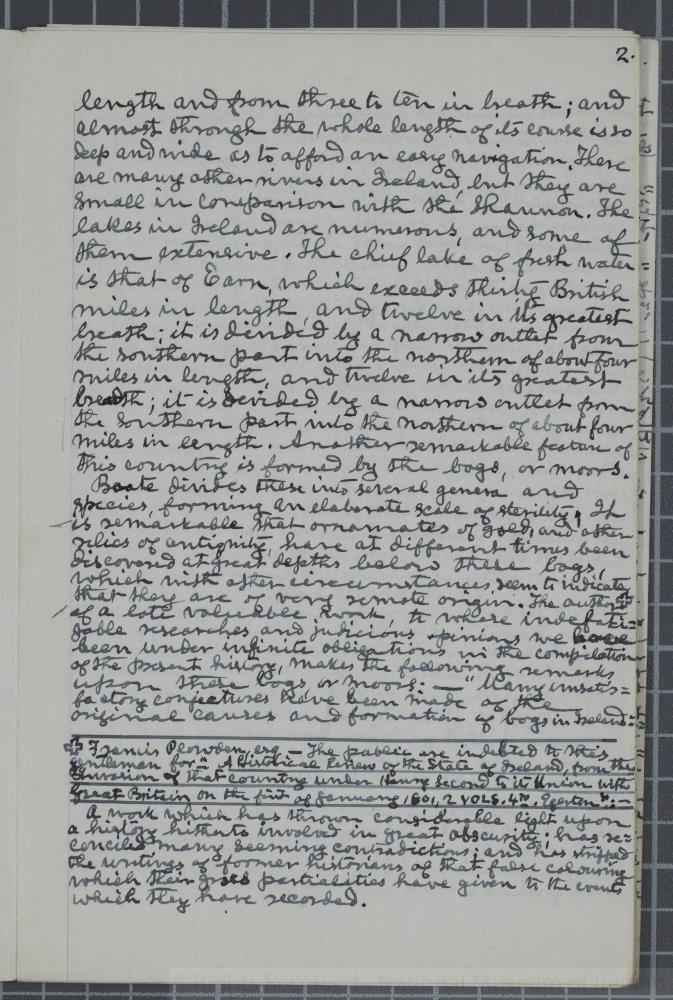 2.
length and from three to ten in breath; and
almost through the whole length of its course is so
deep and wide as to afford an easy navigation. There
are many other rivers in Ireland, but they are
small in comparison with the Shannon. The
lakes in Ireland are numerous, and some of
them extensive. The chief lake of fresh water
is that of Earn, which exceeds thirty British
miles in length, and twelve in its greatest
breath; it is divided by a narrow outlet from
the southern part into the northern of about four
miles in length, and twelve in its greatest
breadth; it is devided by a narrow outlet from
the southern part into the northern of about four
miles in length. Another remarkable feature of
this country is formed by the bogs, or moors.
Boate divides these into several genera and
species, forming an elaborate scale of sterility. It
is remarkable that ornamates of gold, and other
relics of antiquity, have at different times been
discovered at great depths below these bogs,
which with other circumstances, seem to indicate
that they are of very remote origin. The author
of a late valuable work, to whose indefati=
gable researches and judicious opinions we have
been under infinite obligations in the compilation
of the present history, makes the following remarks
upon these bogs or moors: — "Many unsatis=
factory conjectures have been made of the
original causes and formation of bogs in Ireland:
Francis Plowden, esq. — The public are indebted to this
gentleman for "A Historical Review of the State of Ireland, from the
Invasion of that country under Henry Second to its Union with
Great Britain on the first of January 1801, 2 VOLS. 4to, Egerton": —
A work which has thrown considerable light upon
a history hitherto involved in great obscurity; has re=
conciled many seeming contradictions; and has stripped
the writings of former historians of that false colouring
which their gross partialities have given to the events
which they have recorded.